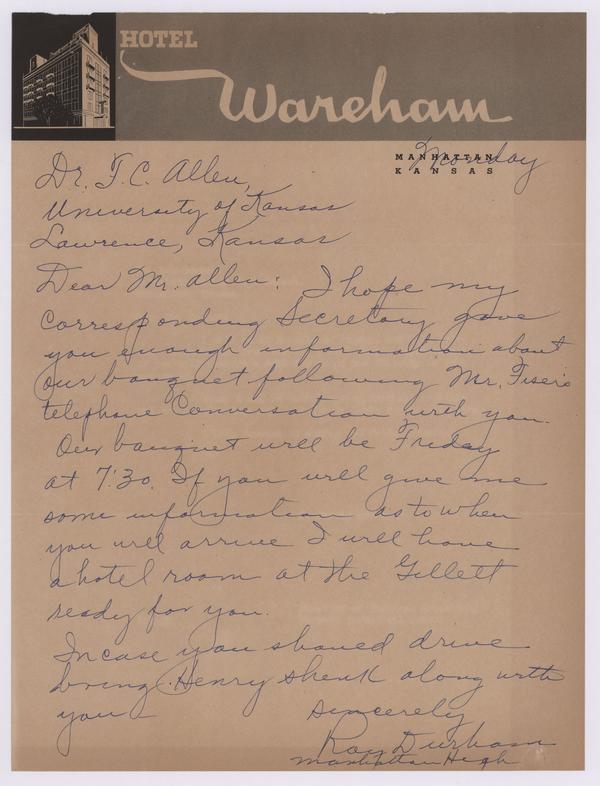 HOTEL
Wareham
MANHATTAN
KANSAS
Monday
Dr. F. C. Allen,
University of Kansas
Lawrence, Kansas
Dear Mr. Allen: I hope my
corresponding Secretary gave
you enough information about
our banquet following Mr. Fiser's
telephone Conversation with you.
Our banquet will be Friday
at 7:30. If you will give me
some information as to when
you will arrive I will have
a hotel room at the Gillett
ready for you.
In case you should drive
bring Henry Shenk along with
you
Sincerely
Ray Durham
Manhattan High